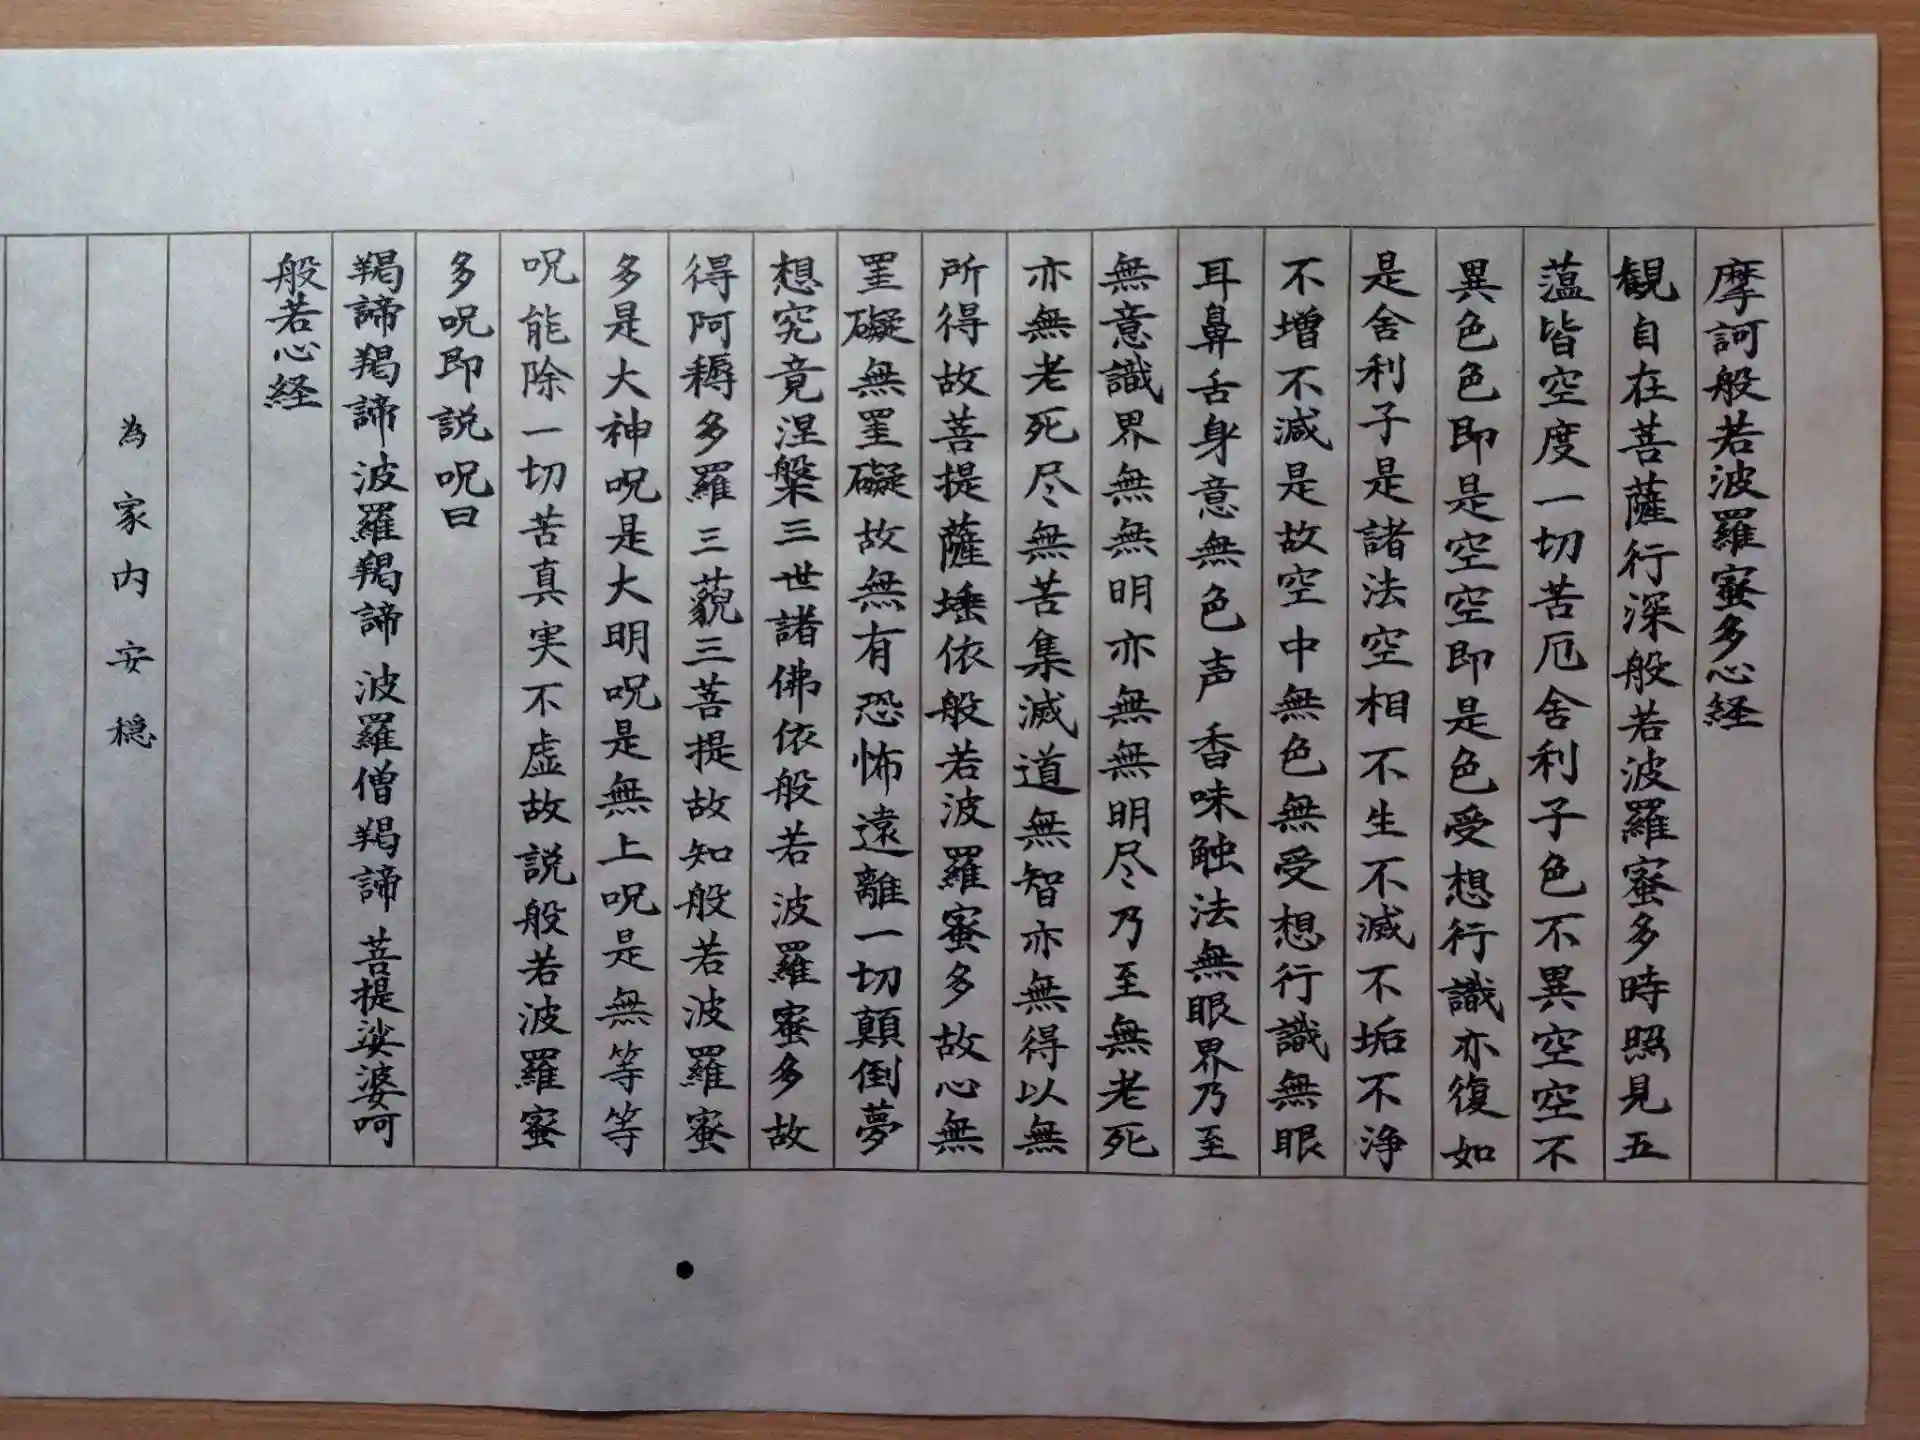 摩訶般若波羅蜜多心経
観自在菩薩行深般若波羅蜜多時照見五
薀皆空度一切苦厄舍利子色不異空空不
異色色即是空空即是色受想行識亦復如
是舍利子是諸法空相不生不滅不垢不浄
不増不減是故空中無色無受想行識無眼
耳鼻舌身意無色声香味触法無眼界乃至
無意識界無無明亦無無明尽乃至無老死
亦無老死尽無苦集滅道無智亦無得以無
所得故菩提薩埵依般若波羅蜜多故心無
罣礙無罣礙故無有恐怖遠離一切顛倒夢
想究竟涅槃三世諸佛依般若波羅蜜多故
得阿耨多羅三藐三菩提故知般若波羅蜜
多是大神呪是大明呪是無上呪是無等等
呪能除一切苦真実不虚故説般若波羅蜜
多呪即説呪曰
羯諦羯諦波羅羯諦波羅僧羯諦菩提娑婆呵
般若心経
為家内安穏